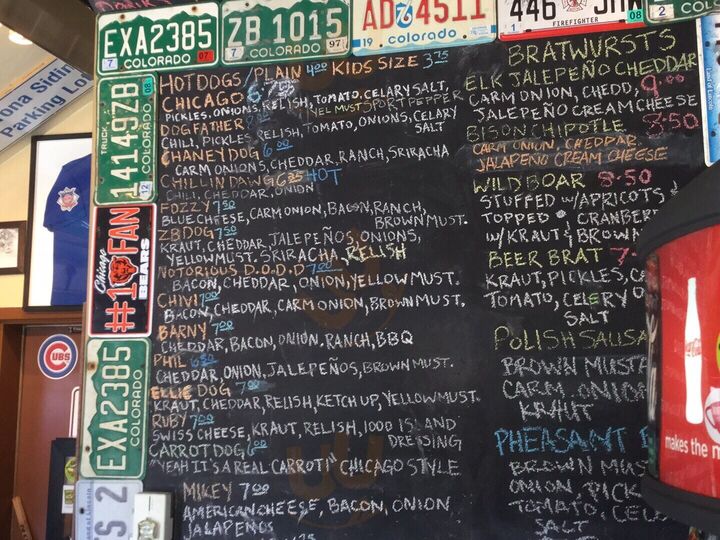 EXA2385
7 COLORADO 07
ZB 1015
7 COLORADO 97
AD 4511
19 76 colorado
446
FIREFIGHTER
08
2 COLORADO
14149ZB
TRUCK
COLORADO
08
12
Chicago
#1 FAN
BEARS
CUBS
EXA2385
COLORADO
S 2
Parking Lo
HOTDOGS/PLAIN 4.00 KIDS SIZE 3.75
CHICAGO
PICKLES, ONIONS, RELISH, TOMATO, CELARY SALT,
YEL MUST SPORT PEPPER
DOGFATHER
CHILI, PICKLES, RELISH, TOMATO, ONIONS, CELARY
SALT
CHANEY DOG 6.00
CARM ONIONS, CHEDDAR, RANCH, SRIRACHA
CHILLIN DAWG 6.25 HOT
CHILI, CHEDDAR, ONION
FOZZY 7.50
BLUE CHEESE, CARM ONION, BACON, RANCH,
BROWN MUST.
ZB DOG 7.50
KRAUT, CHEDDAR, JALEPEÑOS, ONIONS,
YELLOW MUST. SRIRACHA, RELISH
NOTORIOUS D.O.D.D 7.00
BACON, CHEDDAR, ONION, YELLOW MUST.
CHIVI 7.00
BACON, CHEDDAR, CARM ONION, BROWN MUST.
BARNY 7.00
CHEDDAR, BACON, ONION, RANCH, BBQ
PHIL
CHEDDAR, ONION, JALEPEÑOS, BROWN MUST.
ELLIE DOG 7.00
KRAUT, CHEDDAR, RELISH, KETCHUP, YELLOW MUST.
RUBY 7.00
SWISS CHEESE, KRAUT, RELISH, 1000 ISLAND
DRESSING
CARROT DOG 6.00
"YEAH IT'S A REAL CARROT!" CHICAGO STYLE
MIKEY 7.00
AMERICAN CHEESE, BACON, ONION
JALAPENOS
BRATWURSTS
ELK JALEPEÑO CHEDDAR
CARM ONION, CHEDD, 9.00
JALEPEÑO CREAM CHEESE
BISON CHIPOTLE 8.50
CARM ONION, CHEDDAR,
JALAPENO CREAM CHEESE
WILD BOAR 8.50
STUFFED W/APRICOTS &
TOPPED CRANBER
W/KRAUT & BROWN
BEER BRAT 7
KRAUT, PICKLES, CA
TOMATO, CELERY O
SALT
POLISH SAUSA
BROWN MUSTA
CARM. ONION
KRAUT
PHEASANT
BROWN MUS
ONION, PICK
TOMATO, CELE
SALT
makes the m